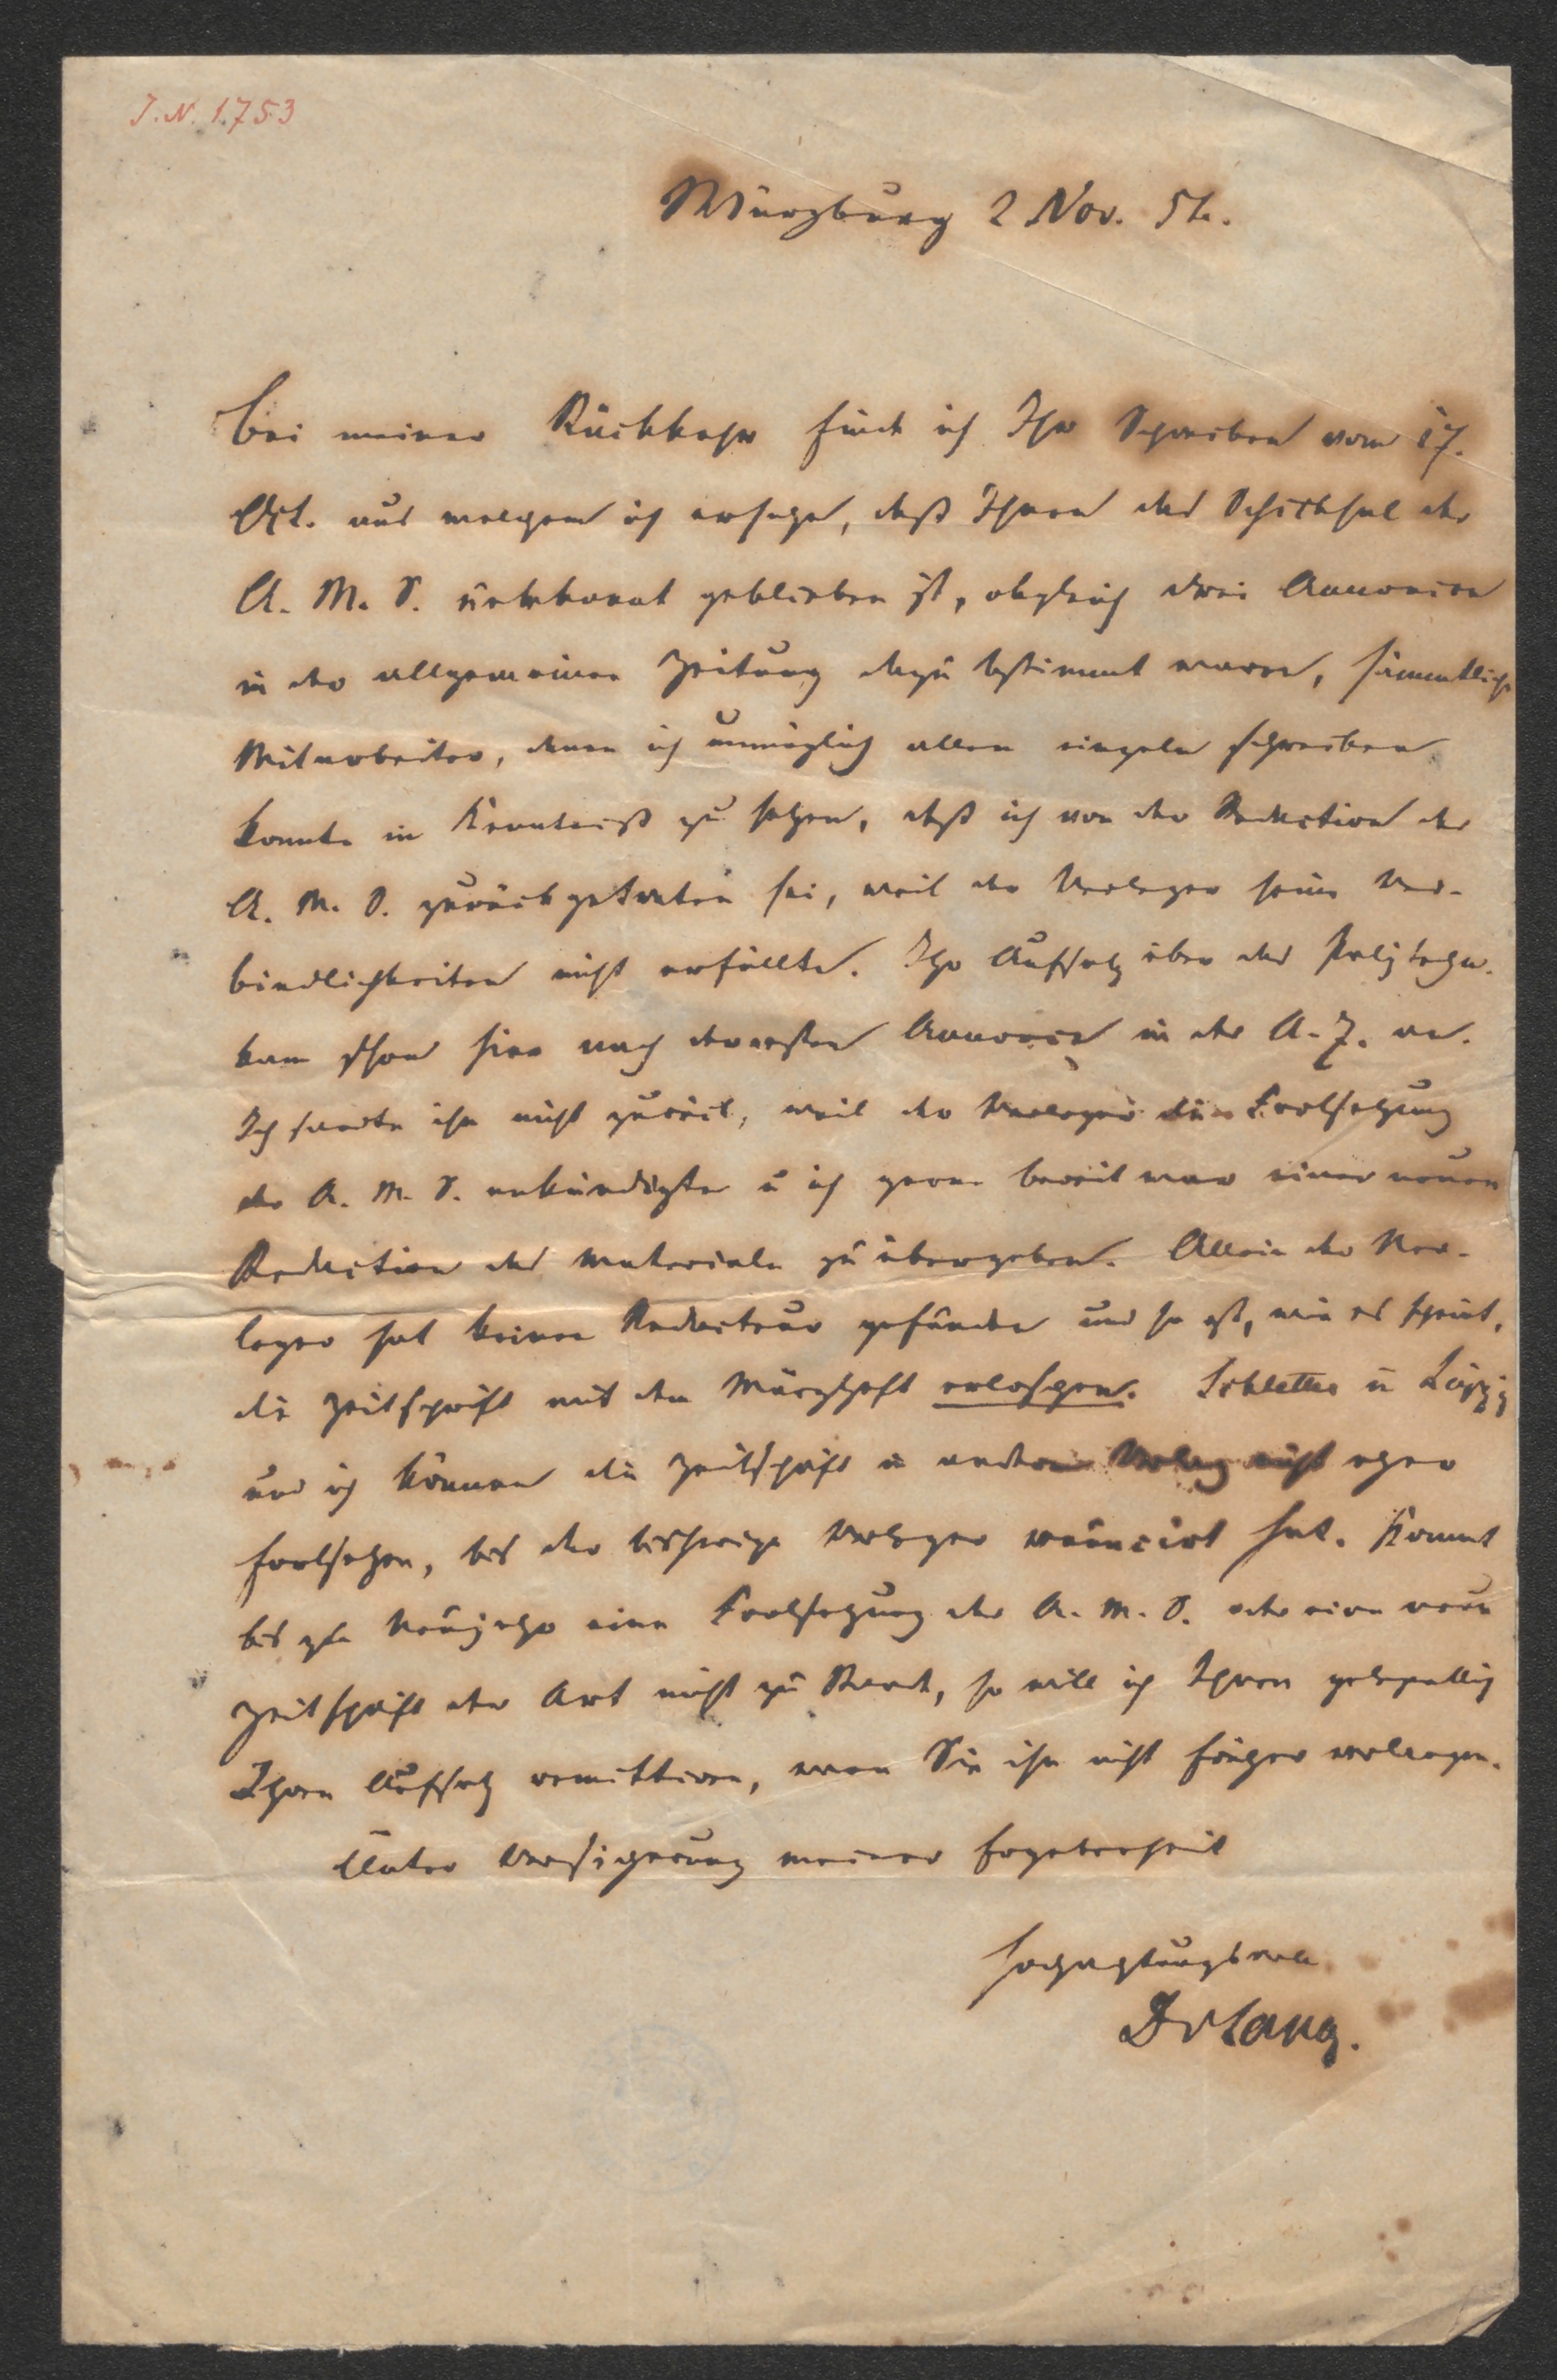 J.N. 1753
Würzburg 2 Nov. 52.
Bei meiner Rückkehr finde ich Ihr Schreiben vom 17.
Okt. aus welchem ich ersehe, daß Ihnen das Schicksal der
A. M. S. unbekannt geblieben ist, obgleich drei Annoncen
in der allgemeinen Zeitung dazu bestimmt waren, sämmtliche
Mitarbeiter, denen ich unmöglich allen einzeln schreiben
konnte in Kenntniß zu setzen, daß ich von der Redaction der
A. M. S. zurückgetreten sei, weil der Verleger seine Ver-
bindlichkeiten nicht erfüllte. Ihr Aufsatz über das Polytechn.
kam schon hier nach der ersten Annonce in der A. Z. an.
Ich sandte ihn nicht zurück, weil der Verleger die Fortsetzung
der A. M. S. ankündigte u ich gerne bereit war einer neuen
Redaction das Materiale zu übergeben. Allein der Ver-
leger hat keinen Redacteur gefunden und so ist, wie es scheint,
die Zeitschrift mit dem Märzheft erloschen. Schletter in Leipzig
und ich können die Zeitschrift in anderm Verlag nicht eher
fortsetzen, bis der bisherige Verleger renuncirt hat. Kommt
bis zu Neujahr eine Fortsetzung der A. M. S. oder eine neue
Zeitschrift der Art nicht zu Stande, so will ich Ihnen
Ihren Aufsatz remittiren, wenn Sie ihn nicht früher verlangen.
Unter Versicherung meiner Ergebenheit
hochachtungsvoll
Dr Lang.